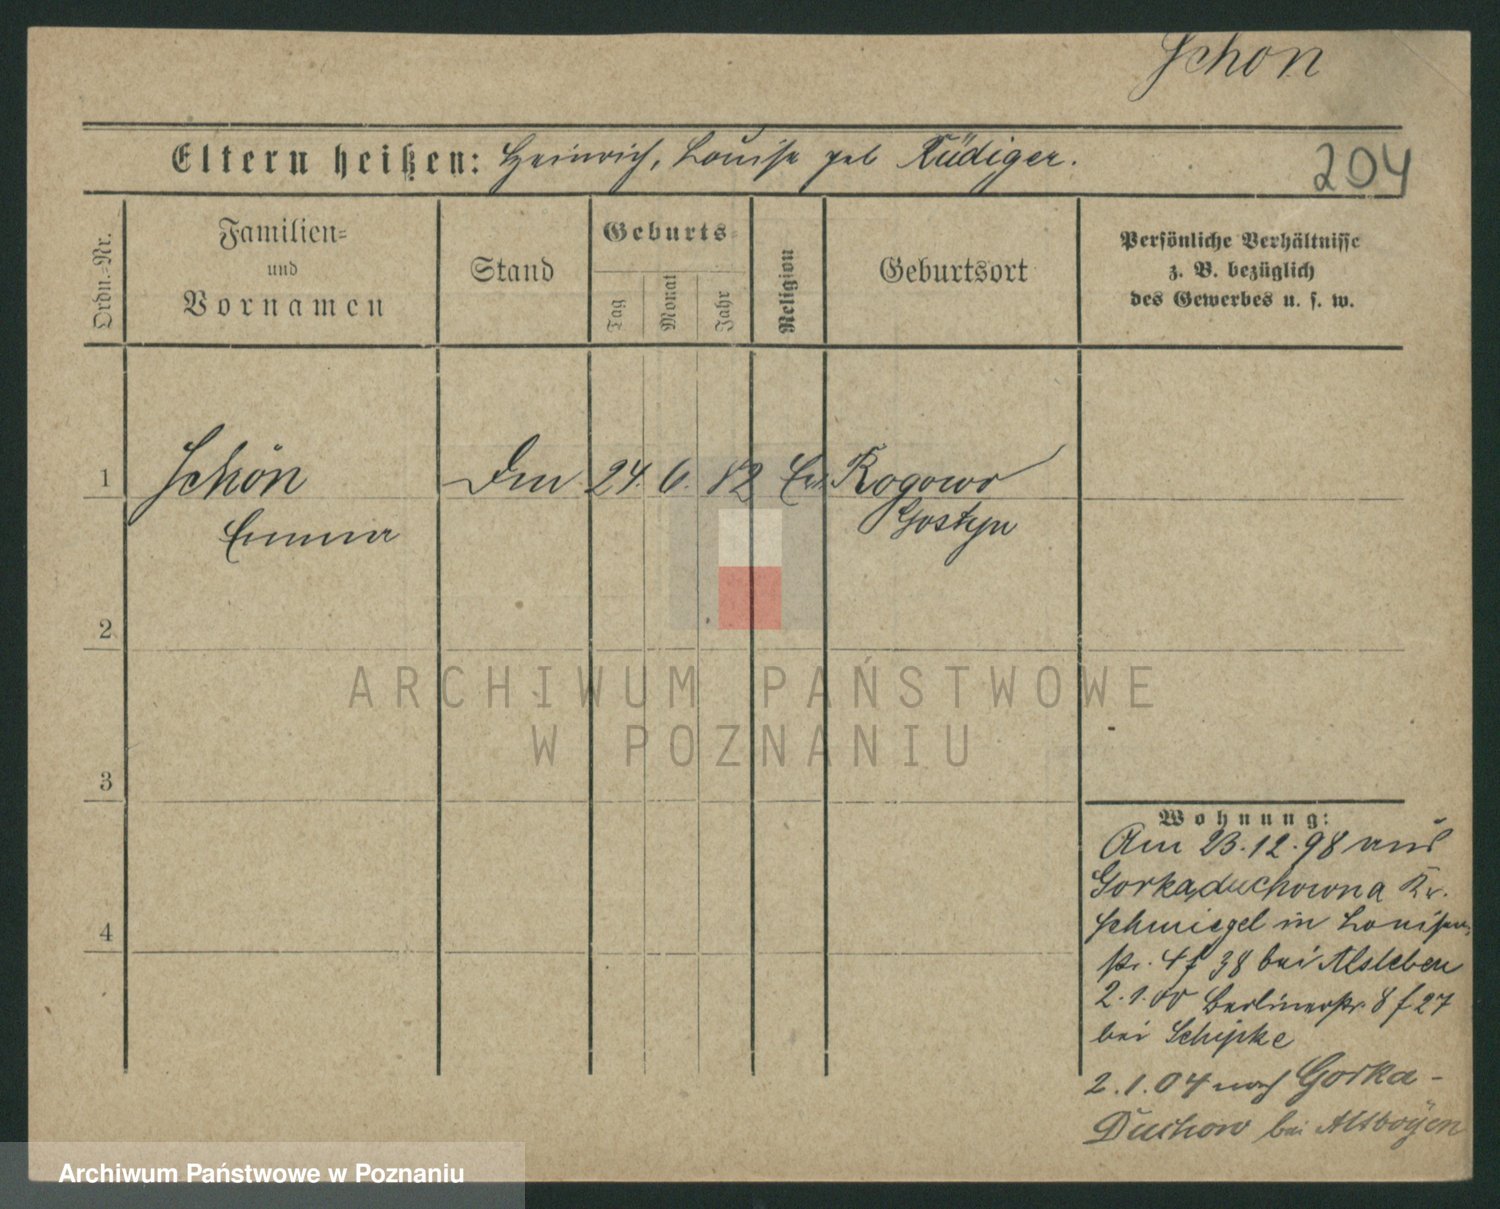 Schön
Eltern heißen: Heinrich, Louise geb Rüdiger.
204
Ordn.=Nr.
Familien=
und
Vornamen
Stand
Geburts=
Tag
Monat
Jahr
Religion
Geburtsort
Persönliche Verhältnisse
z. B. bezüglich
des Gewerbes u. s. w.
1
Schön
Emma
24. 6. 82 Ev. Rogowo
Gostyn
2
3
4
ARCHIWUM PAŃSTWOWE
W POZNANIU
Wohnung:
Am 23.12.98 aus
Gorkaduchowna Kr.
Schmiegel in Louisen
str. 4 f 38 bei Alsleben
2.1.00 Berlinerstr 8 f 27
bei Schipke
2.1.04 nach Gorka-
Duchow bei Altboyen
Archiwum Państwowe w Poznaniu